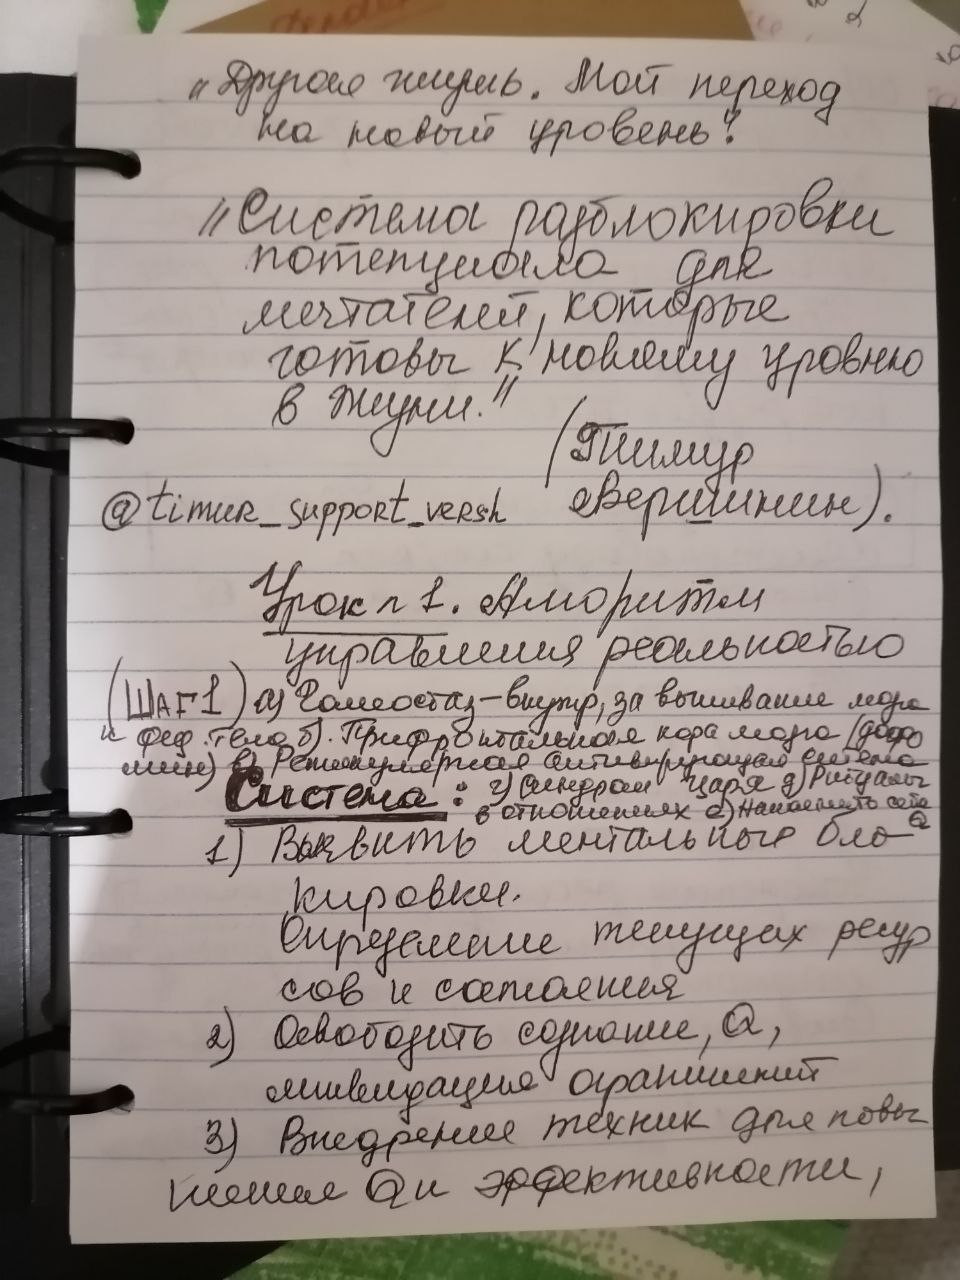 „Другая жизнь. Мой переход
на новый уровень"
„Система разблокировки
потенциала для
мечтателей, которые
готовы к новому уровню
в жизни."
(Тимур
Вершинин).
@timur_support_versh
Урок n 1. Алгоритм
управления реальностью
(ШАГ 1) а) Гомеостаз – внутр, за выживание мозга
и физ. тела б). Прифронтальная кора мозга (дофо
мин) в) Ретикулярная активирующая система
Система: г) Синдром царя д) Ритуалы
в отношениях е) Наполнить себя
1) Выявить ментальные бло-
кировки.
Определение текущих ресур
сов и состояния
2) Освободить сознание, Q,
ликвидация ограничений
3) Внедрение техник для повы
шения Q и эффективности,